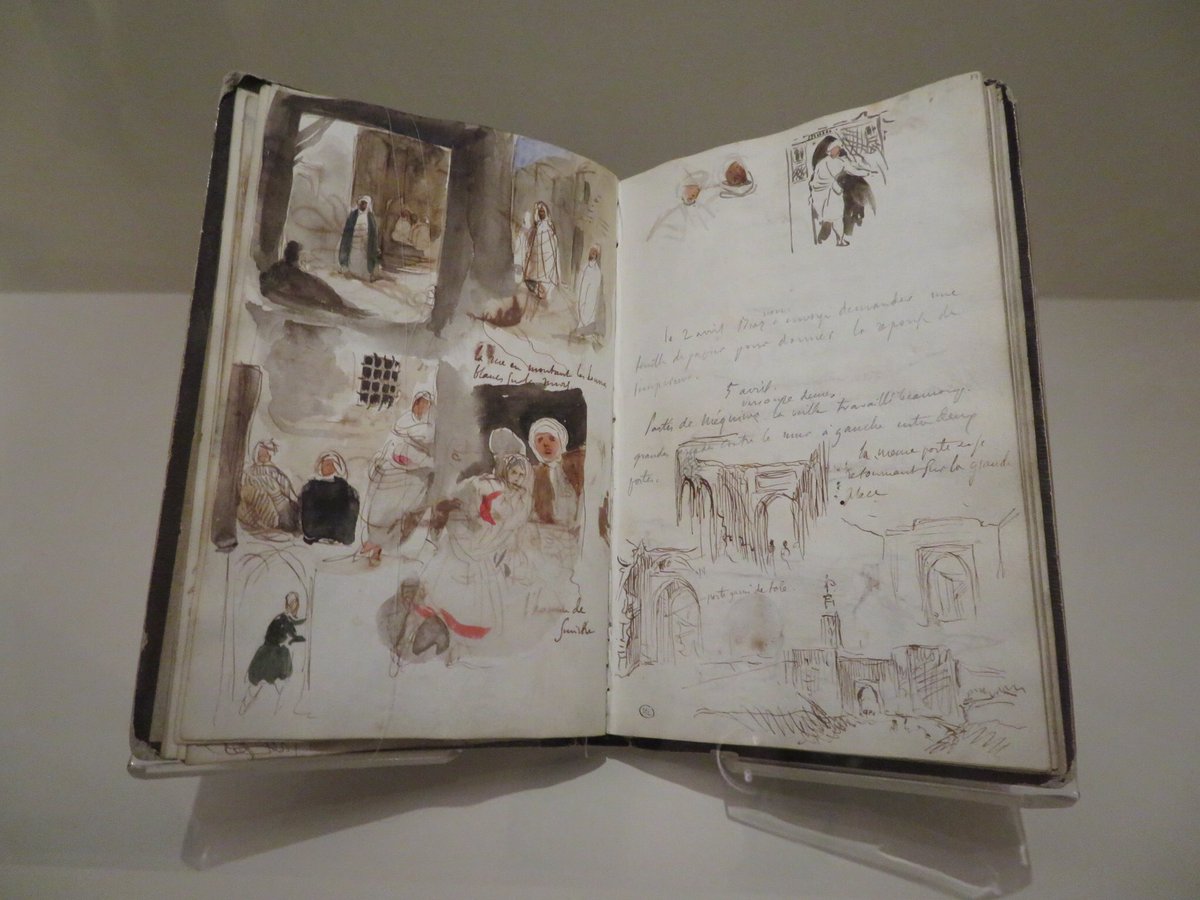 la rue en montant les hommes
blancs sur le mur
l'homme de
le 2 avril envoyé demander une
feuille de papier pour donner la réponse de
l'empereur.
5 avril.
Portes de Méquinez la veille travaillé beaucoup.
grande contre le mur à gauche entre deux
portes.
la même porte en se
retournant sur la grande
place
porte garni de tôle.